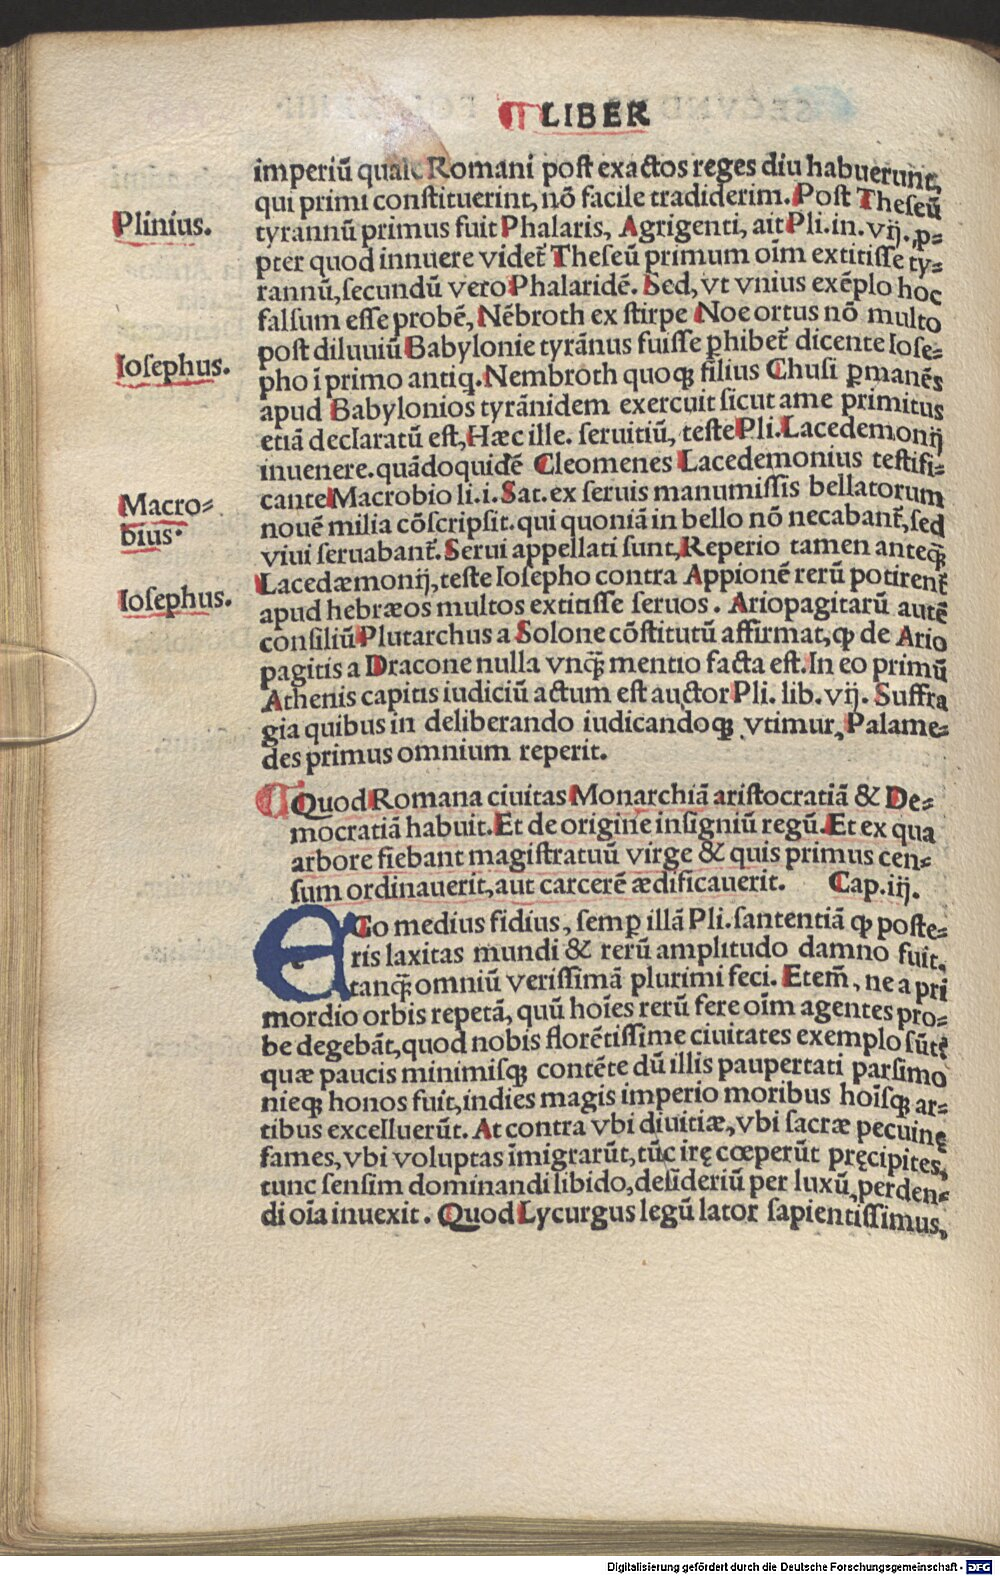 ¶ LIBER
imperiū quale Romani post exactos reges diu habuerunt,
qui primi constituerint, nō facile tradiderim. Post Theseū
Plinius.
tyrannū primus fuit Phalaris, Agrigenti, ait Pli. in. vij. ꝓ-
pter quod innuere videt᷑ Theseū primum oīm extitisse ty-
rannū, secundū vero Phalaridē. Sed, vt vnius exēplo hoc
falsum esse probē, Nēbroth ex stirpe Noe ortus nō multo
post diluuiū Babylonie tyrānus fuisse ꝑhibet᷑ dicente Iose-
Iosephus.
pho ī primo antiq. Nembroth quoqꝫ filius Chusi ꝑmanēs
apud Babylonios tyrānidem exercuit sicut ame primitus
etiā declaratū est, Hæc ille. seruitiū, teste Pli. Lacedemonij
inuenere. quādoquidē Cleomenes Lacedemonius testifi-
Macro-
bius.
cante Macrobio li. i. Sat. ex seruis manumissis bellatorum
nouē milia cōscripsit. qui quoniā in bello nō necabant᷑, sed
viui seruabant᷑. Serui appellati sunt, Reperio tamen anteqꝫ̄
Iosephus.
Lacedæmonij, teste Iosepho contra Appionē rerū potirent᷑
apud hebræos multos extitisse seruos. Ariopagitarū autē
consiliū Plutarchus a Solone cōstitutū affirmat, ꝙ de Ario
pagitis a Dracone nulla vnqꝫ̄ mentio facta est. In eo primū
Athenis capitis iudiciū actum est auctor Pli. lib. vij. Suffra
gia quibus in deliberando iudicandoqꝫ vtimur, Palame-
des primus omnium reperit.
¶ Quod Romana ciuitas Monarchiā aristocratiā & De-
mocratiā habuit. Et de origine insigniū regū. Et ex qua
arbore fiebant magistratuū virge & quis primus cen-
sum ordinauerit, aut carcerē ædificauerit. Cap. iij.
EGo medius fidius, semꝑ illā Pli. santentiā ꝙ poste-
ris laxitas mundi & rerū amplitudo damno fuit,
tanqꝫ̄ omniū verissimā plurimi feci. Etem̄, ne a pri
mordio orbis repetā, quū hoīes rerū fere oīm agentes pro-
be degebāt, quod nobis florētissime ciuitates exemplo sūt,
quæ paucis minimisqꝫ contēte dū illis paupertati parsimo
nieqꝫ honos fuit, indies magis imperio moribus hoīsqꝫ ar-
tibus excelluerūt. At contra vbi diuitiæ, vbi sacræ pecuinę
fames, vbi voluptas īmigrarūt, tūc irę cœperūt pręcipites,
tunc sensim dominandi libido, desideriū per luxū, perden-
di oīa inuexit. Quod Lycurgus legū lator sapientissimus,
Digitalisierung gefördert durch die Deutsche Forschungsgemeinschaft - DFG